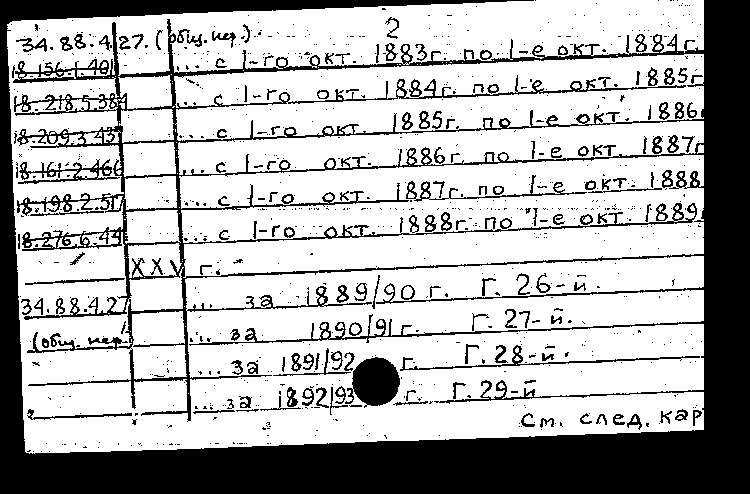 2
34.88.4.27. (общ. пер.)
18.156.1.401 ... с 1-го окт. 1883г. по 1-е окт. 1884г.
18.218.5.384 ... с 1-го окт. 1884г. по 1-е окт. 1885г.
18.209.3.437 ... с 1-го окт. 1885г. по 1-е окт. 1886г
18.161.2.466 ... с 1-го окт. 1886г. по 1-е окт. 1887г
18.198.2.517 ... с 1-го окт. 1887г. по 1-е окт. 1888
18.276.6.44 ... с 1-го окт. 1888г. по 1-е окт. 1889
XXV г.
34.88.4.27 ... за 1889/90 г. Г. 26-й.
(общ. пер.) ... за 1890/91 г. Г. 27-й.
... за 1891/92 г. Г. 28-й.
... за 1892/93 г. Г. 29-й
См. след. кар